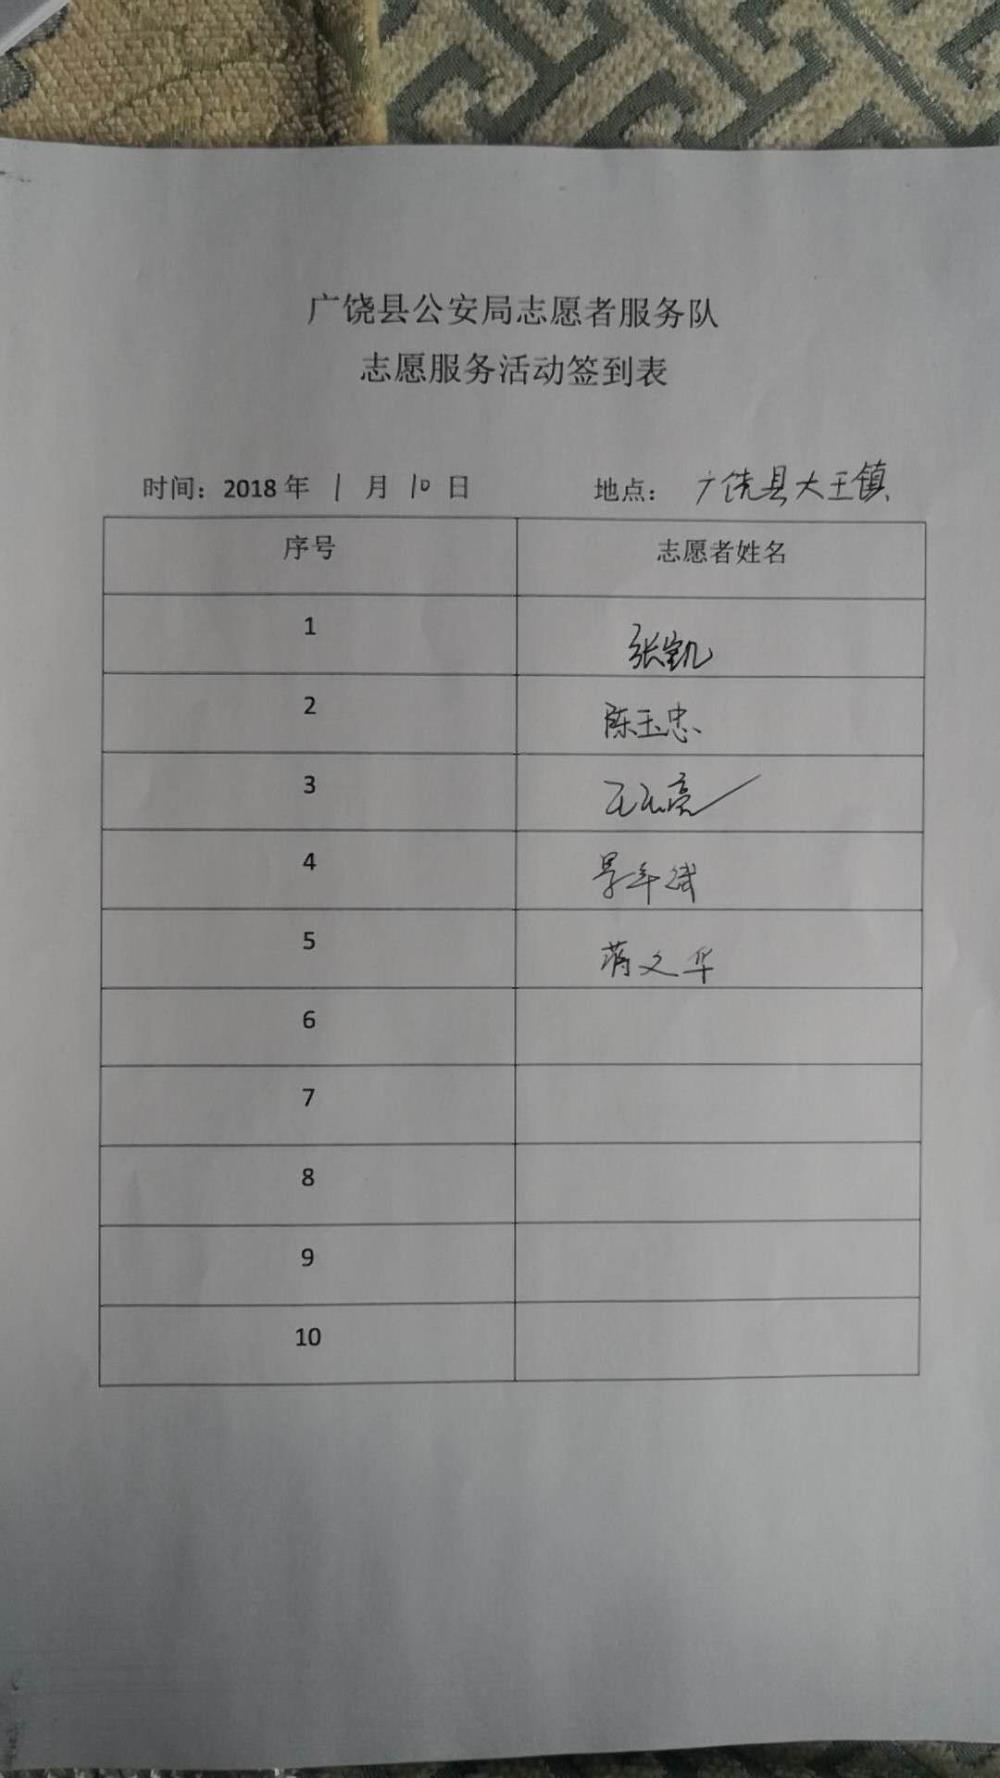 广饶县公安局志愿者服务队
志愿服务活动签到表
时间：2018 年 1 月 10 日 地点： 广饶县大王镇
序号 志愿者姓名
1 张凯
2 陈玉忠
3
4
5 蒋文华
6
7
8
9
10